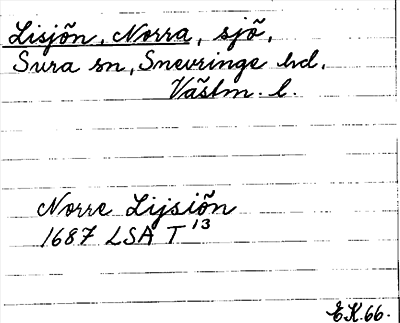 Lisjön, Norra, sjö,
Sura sn, Snevringe hd.
Västm. l.
Norre Lijsiön
1687 LSA T 13
E.K. 66.